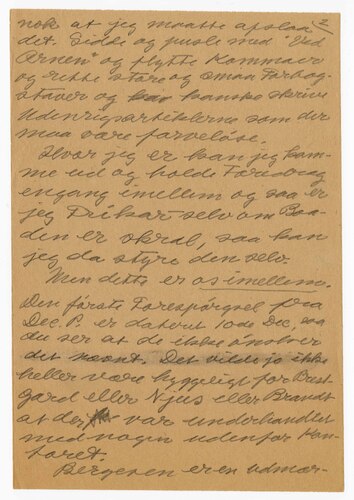 2
nok at jeg maatte afslaa
det. Sidde og pusle med "Ved
Arnen" og flytte Kommaer
og rette store og smaa Forbog-
staver og kanske skrive
Udenrigsartiklerne som der
maa være farveløse.
Hvor jeg er kan jeg kom-
me ud og holde Foredrag
engang imellem og saa er
jeg Skikar selv om Baa-
den er skral, saa kan
jeg da styre den selv.
Men dette er os imellem.
Den første Forespørgsel fra
Dec. P. er dateret 10de Dec, saa
du ser at de ikke ønsker
det nævnt. Det vilde jo ikke
heller være hyggeligt for Brist-
gard eller Njus eller Brandt
at der var underhandlet
med nogen udenfor Kon-
toret.
Bergesen er en udmær-